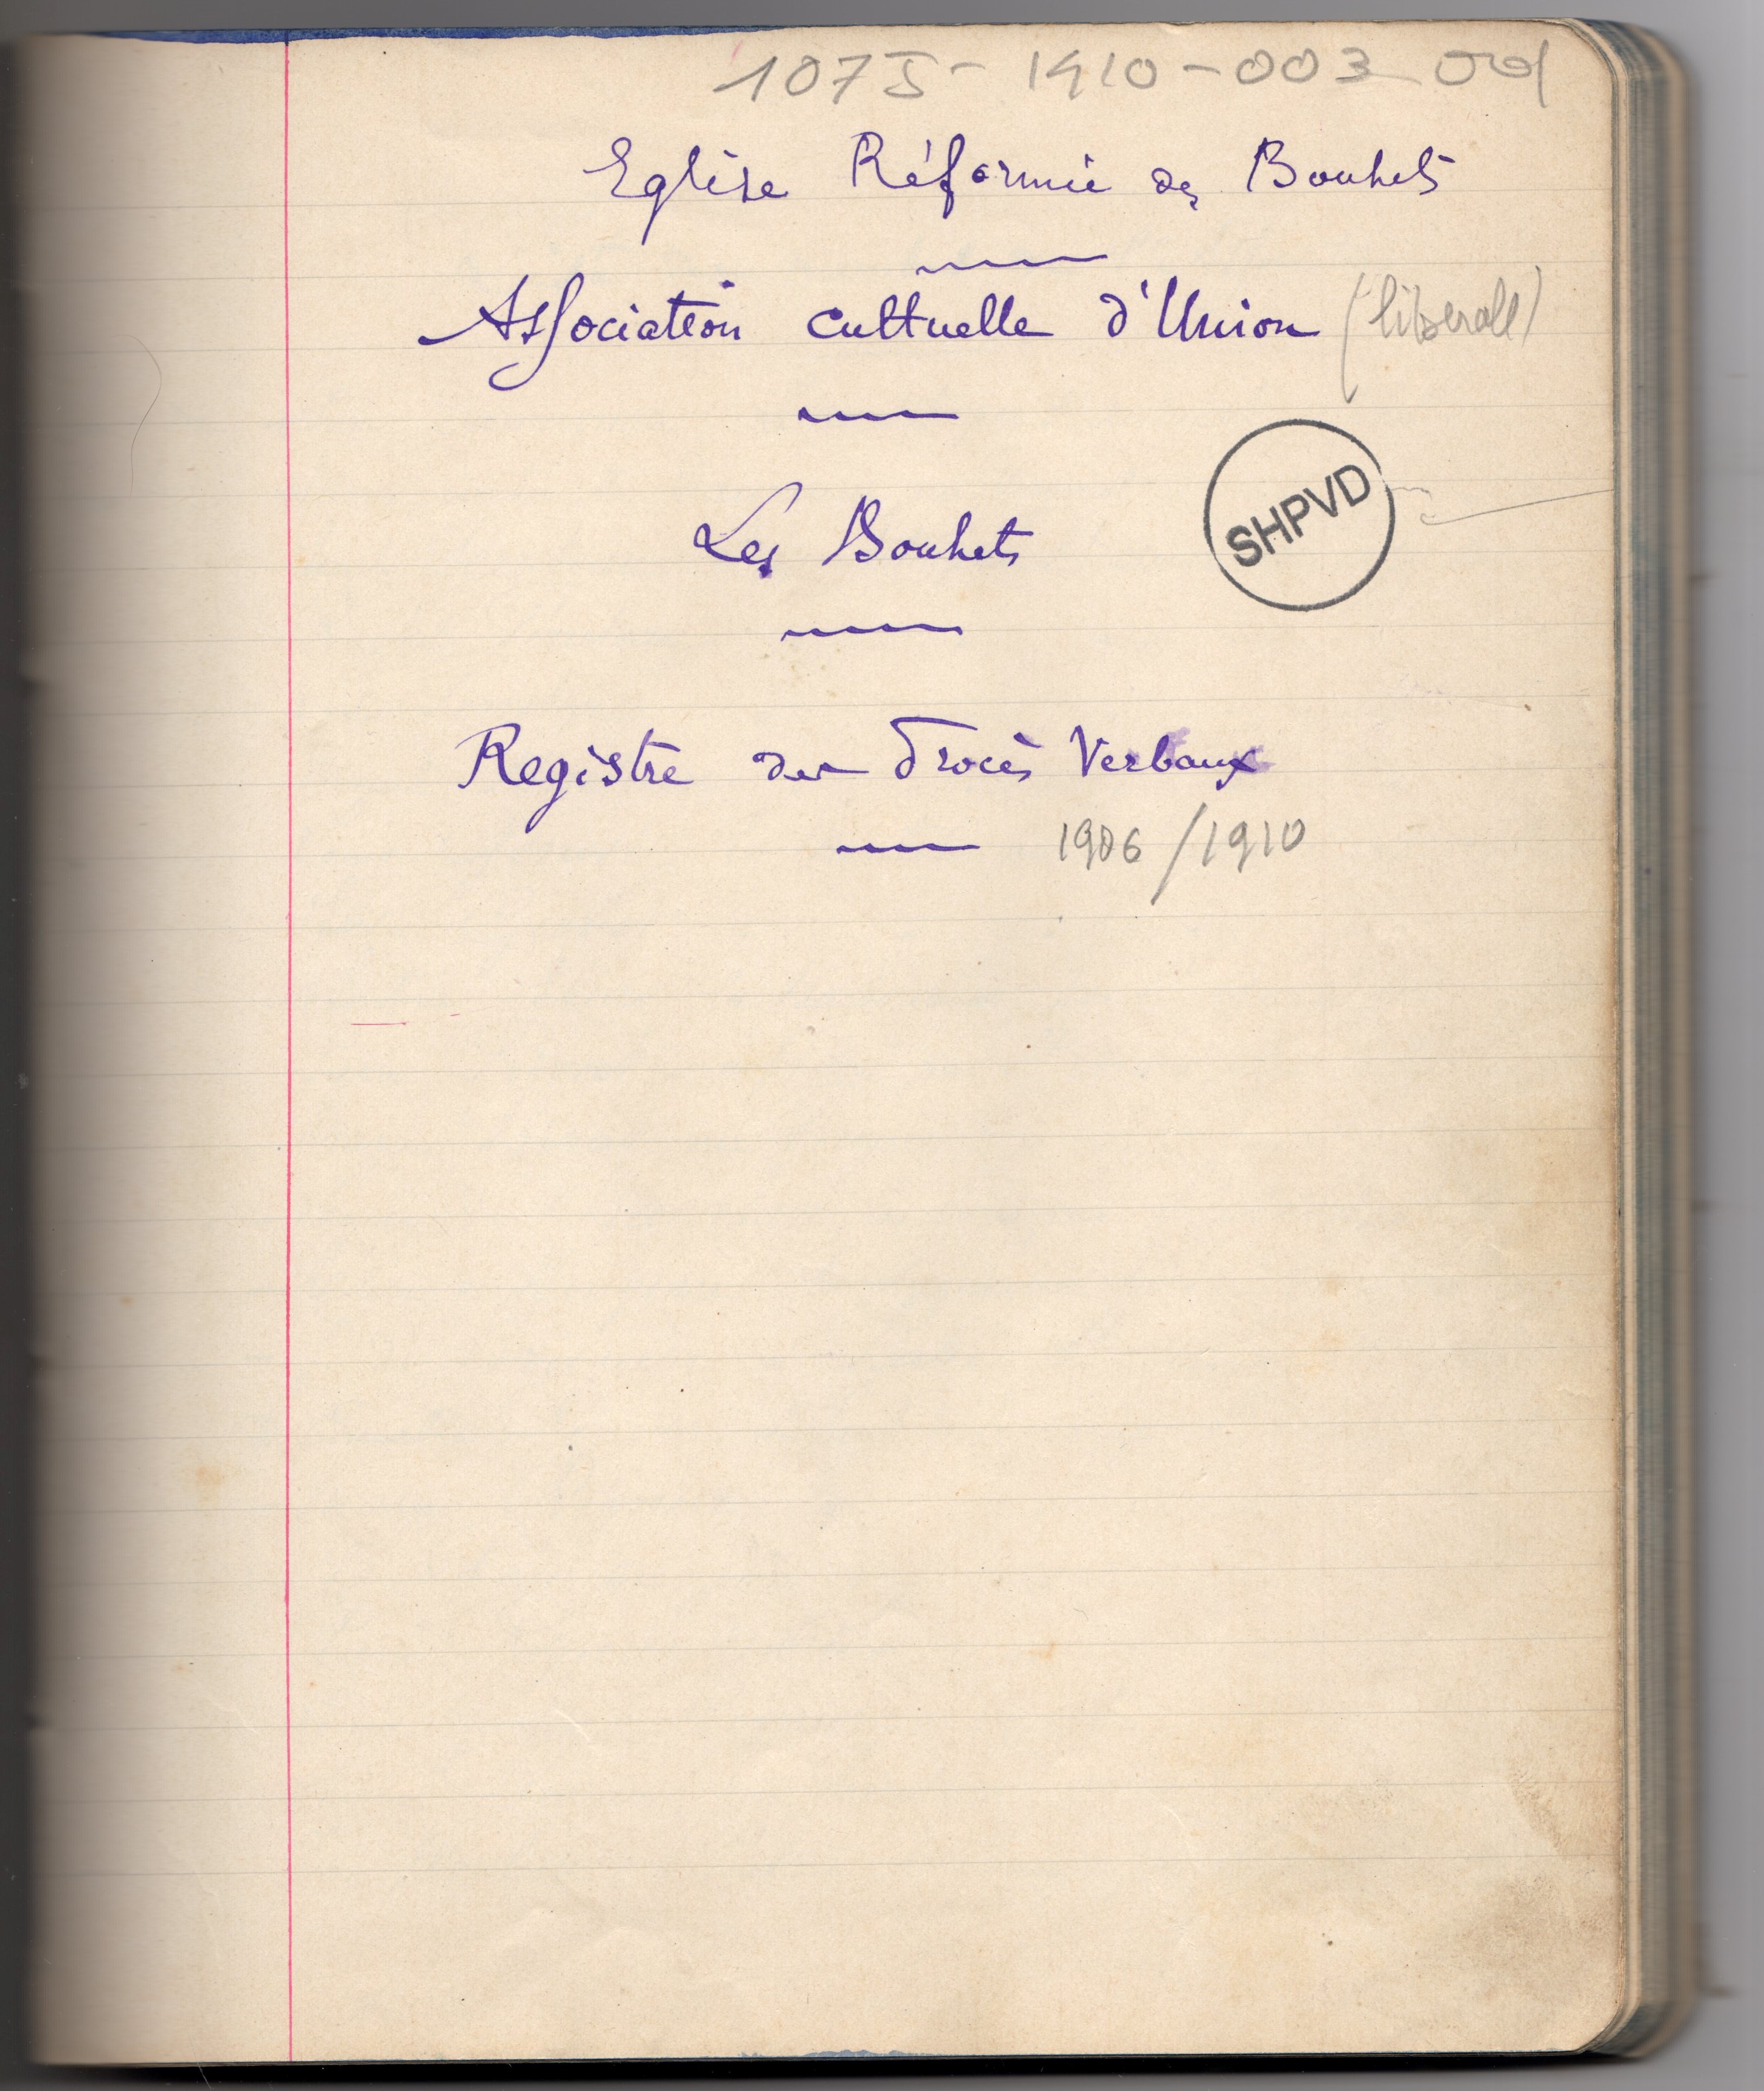 107J - 1910 - 003
Eglise Réformée des Bouhets
Association cultuelle d'Union (libérale)
Les Bouhets
SHPVD
Registre des Procès Verbaux
1906/1910